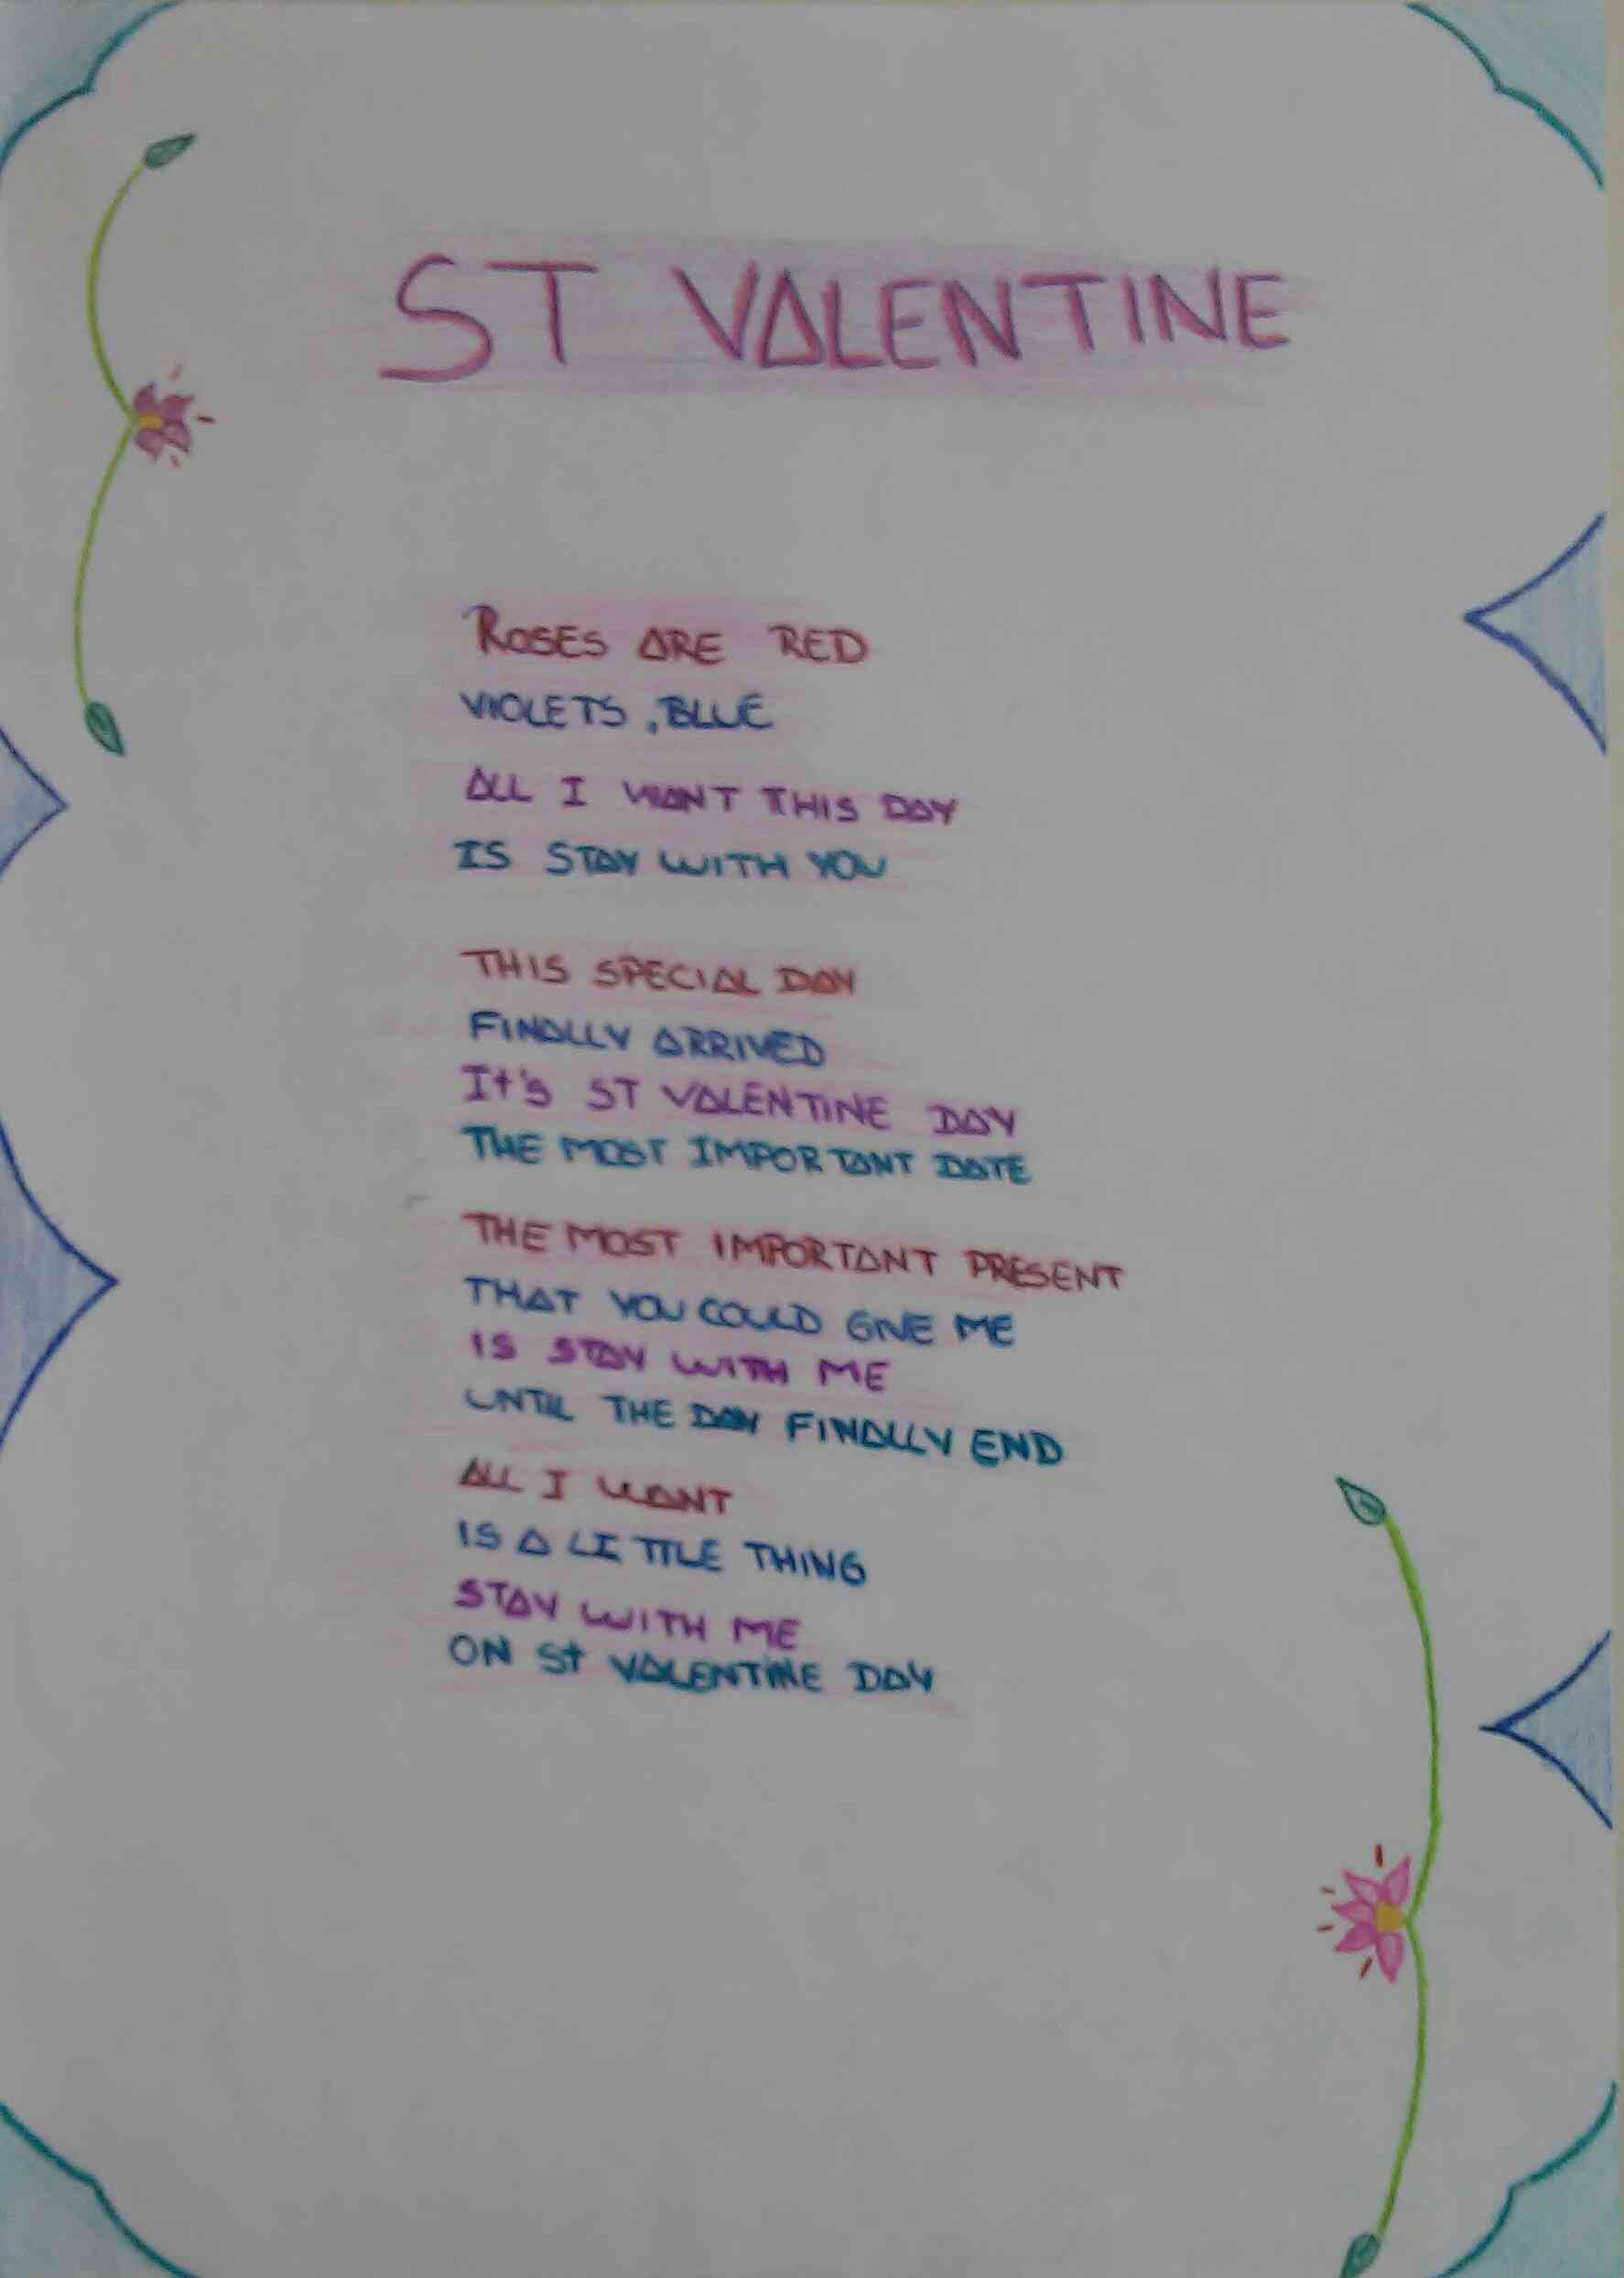 ST VALENTINE
ROSES ARE RED
VIOLETS , BLUE
ALL I WANT THIS DAY
IS STAY WITH YOU
THIS SPECIAL DAY
FINALLY ARRIVED
It's ST VALENTINE DAY
THE MOST IMPORTANT DATE
THE MOST IMPORTANT PRESENT
THAT YOU COULD GIVE ME
IS STAY WITH ME
UNTIL THE DAY FINALLY END
ALL I WANT
IS A LITTLE THING
STAY WITH ME
ON St VALENTINE DAY